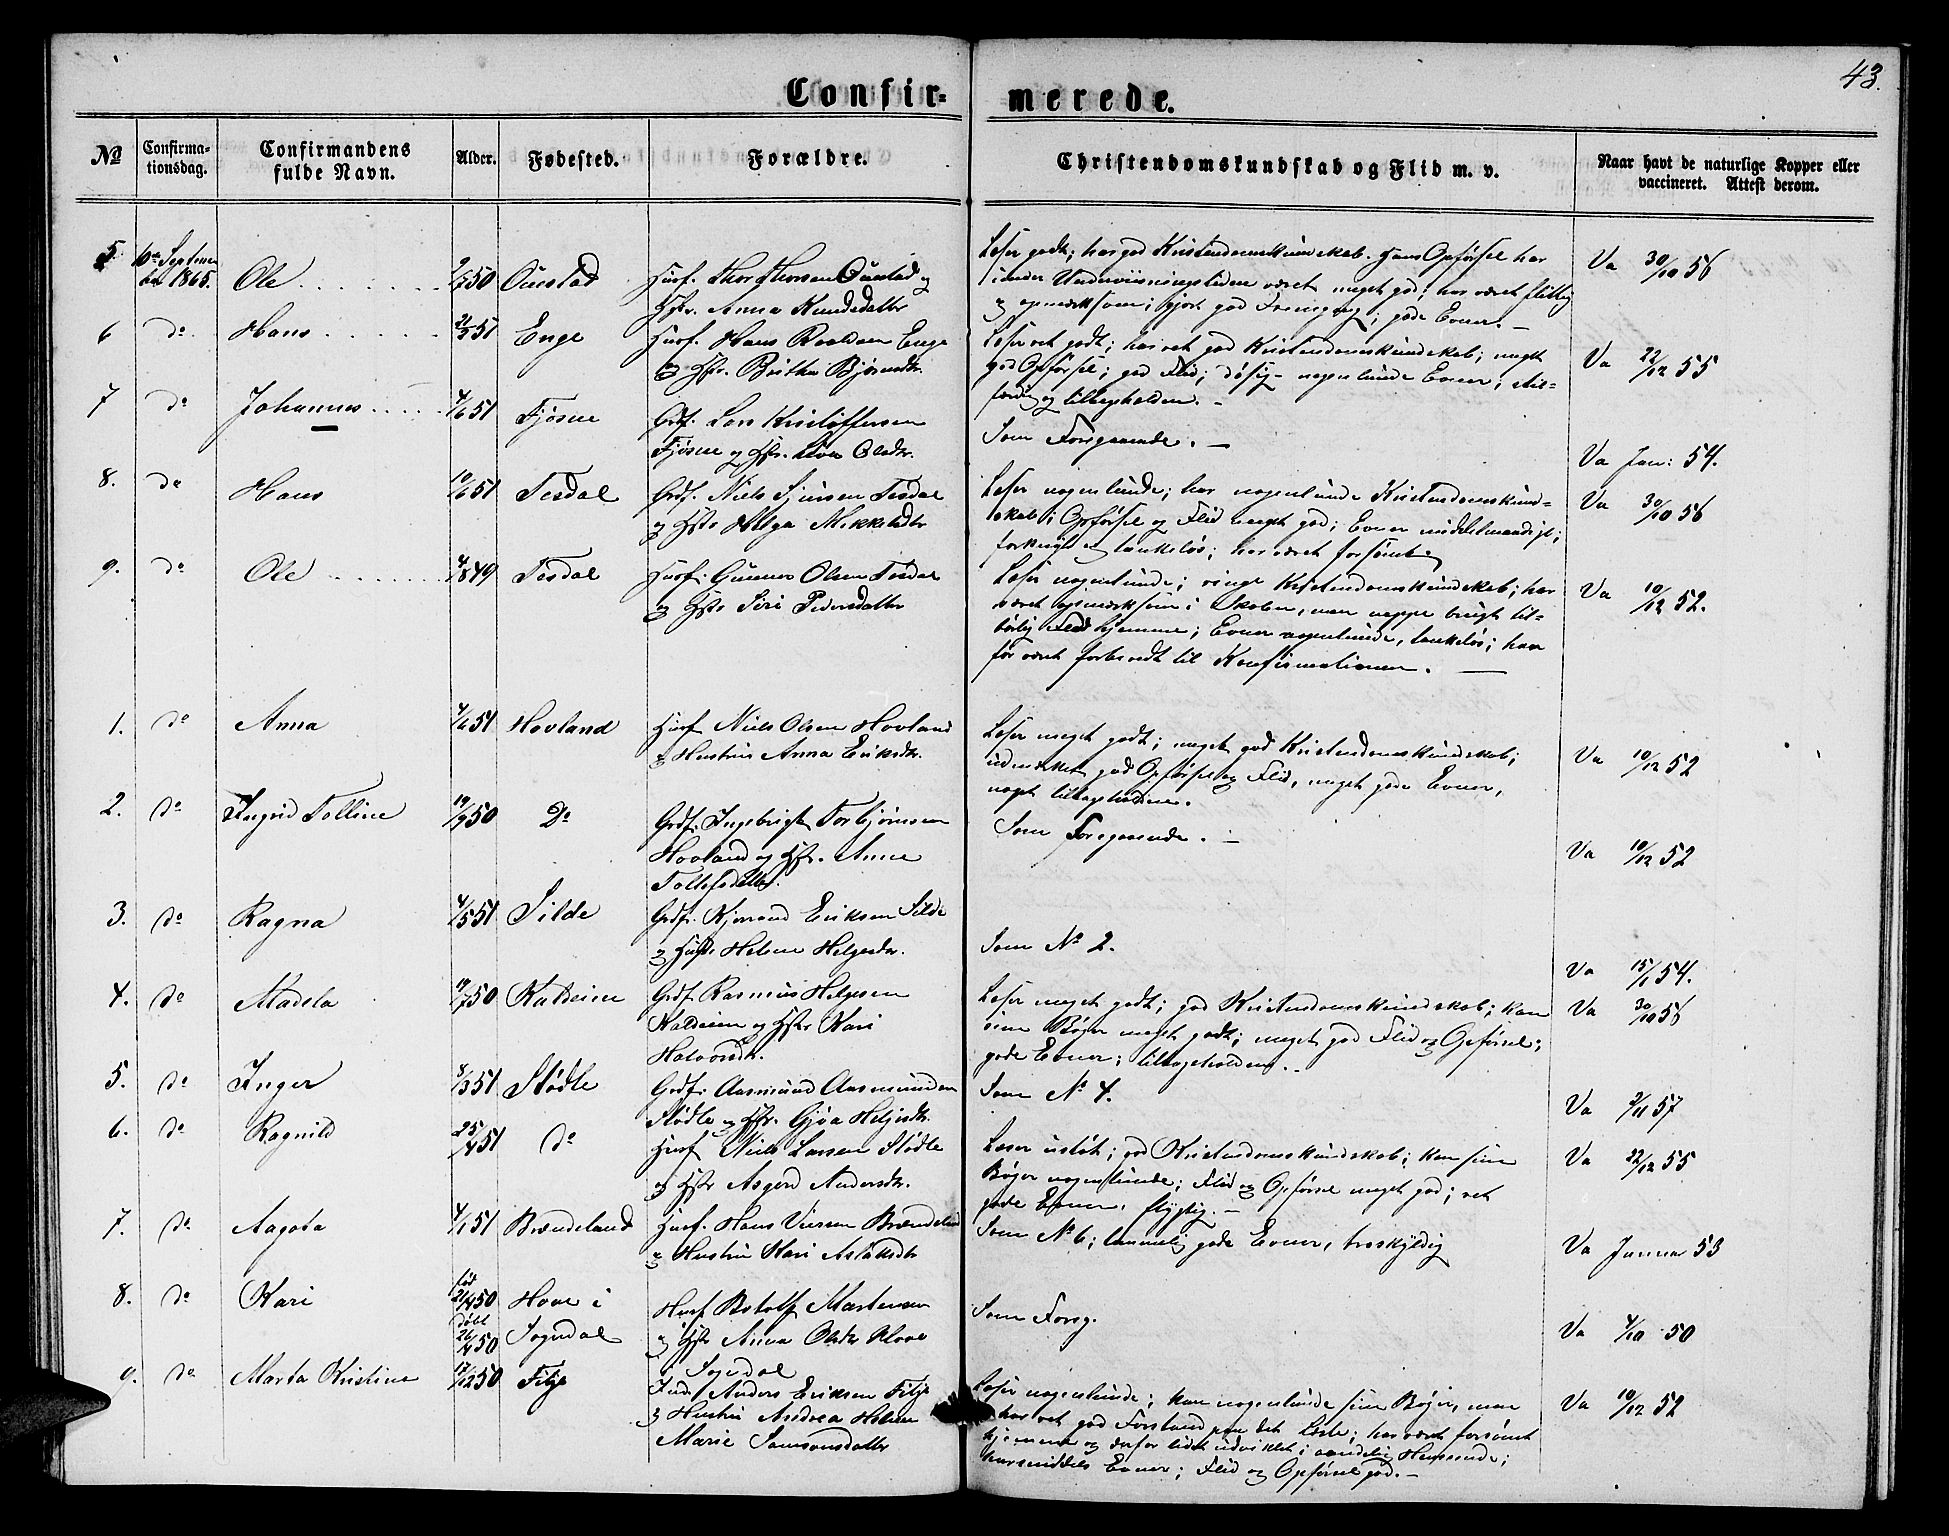 43.
Confir=
merede.
No
Confirma=
tionsdag.
Confirmandens
fulde Navn.
Alder.
Fødested.
Forældre.
Christendomskundskab og Flid m. v.
Naar havt de naturlige Kopper eller
vaccineret. Attest derom.
5
10de Septem
ber 1865.
Ole
2/7 50
Ounstad
Husf. Thor Thorsen Ounstad og
Hstr. Anna Knudsdatter
Læser godt; har god Kristendomskundskab. Hans Opførsel har
under Underviisningstiden været meget god; har været flittig
og opmærksom; gjort god Fremgang; gode Evner. —
Va 30/10 56
6
do
Hans
Enge
Husf. Hans Roaldsen Enge
og Hstr. Britha Bjørnsdtr.
Læser ret godt; har ret god Kristendomskundskab; meget
god Opførsel; god Flid; døsig - nogenlunde Evner; stil-
færdig og tilbageholden. —
Va 22/12 55
7
do
Johannes
4/6 51
Fjøsne
Grdf. Lars Kristoffersen
Fjøsne og Hstr. Olsdtr.
Som Foregaaende. —
Va Jan: 54.
8.
do
Hans
10/6 51
Tesdal
Grdf. Niels Sjursen Tesdal
og Hstr Helga
Læser nogenlunde; har nogenlunde Kristendomskund-
skab; Opførsel og Flid meget god; Evner middelmaadige;
forknyt og tankeløs; har været forsømt.
Va 30/10 56
9.
do
Ole
4/8 49
Tesdal
Husf. Gunnar Olsen Tesdal
og Hstr Siri Pedersdatter
Læser nogenlunde; ringe Kristendomskundskab; har
været opmærksom i Skolen, men neppe brugt til-
børlig Flid hjemme; Evner nogenlunde, tankeløs; har
før været forberedt til Konfirmationen. —
Va 10/12 52.
1.
do
Anna
4/6 51
Hovland
Husf. Niels Olsen Hovland
og Hustru Anna Eriksdtr.
Læser meget godt; meget god Kristendomskundskab;
udmærket god Opførsel og Flid, meget gode Evner,
noget tilbageholden.
Va 10/12 52
2.
do
Ingrid Tolline
19/9 50
Do
Grdf. Ingebrigt Torbjørnsen
Hovland og Hstr. Anna
Tollefsdatter.
Som Foregaaende. —
Va 10/12 52
3.
do
Ragna
4/5 51
Silde
Grdf. Eriksen Silde
og Hustr Helene Helgesdtr.
Som No 2.
Va 15/1 54.
4.
do
Madela
19/7 50
Kaldeien
Grdf Rasmus Helgesen
Kaldeien og Hstr Kari
Halvorsdtr.
Læser meget godt; god Kristendomskundskab; kan
sine Bøger meget godt; meget god Flid og Opførsel;
gode Evner; tilbageholden.
Va 30/10 56
5.
do
Inger
8/3 51
Stødle
Grdf. Aasmund Aasmundsen
Stødle og Hstr. Gjøa Helgesdtr.
Som No 4.
Va 2/11 57
6.
do
Ragnild
25/4 51
do
Husf Niels Larsen Stødle
og Hstr Asgerd Andersdtr.
Læser ustøt; god Kristendomskundskab; kan sine
Bøger nogenlunde; Flid og Opførsel meget god; ret
gode Evner, flygtig. —
Va 22/12 55
7.
do
Aagota
4/1 51
Brændeland
Husf. Hans Brændeland
og Hustru Kari Aslaksdtr
Som No 6; temmelig gode Evner, troskyldig
Va Januar 53
8.
do
Kari
fød
21/4 50
døbt
26/4 50
Hove i
Sogndal
Husf Botolf Martensen
og Hstr Anna Olsdtr Hove
i Sogndal
Som Foreg.
Va 4/10 50
9.
do
Marta Kristine
17/12 50
Fitje
Ind. Anders Eriksen Fitje
og Hustru Andrea Helene
Marie Samsonsdatter
Læser nogenlunde; kan nogenlunde sine Bøger, men
har ret god Forstand paa det Læste; har været forsømt
hjemme og derfor lidet udviklet i aandelig Henseende;
Evner; Flid og Opførsel god. —
Va 10/12 52